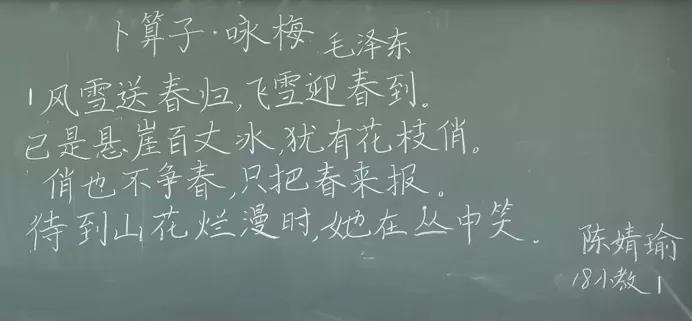 卜算子·咏梅 毛泽东
风雪送春归,飞雪迎春到。
已是悬崖百丈冰,犹有花枝俏。
俏也不争春,只把春来报。
待到山花烂漫时,她在丛中笑。
陈婧瑜
18小教1